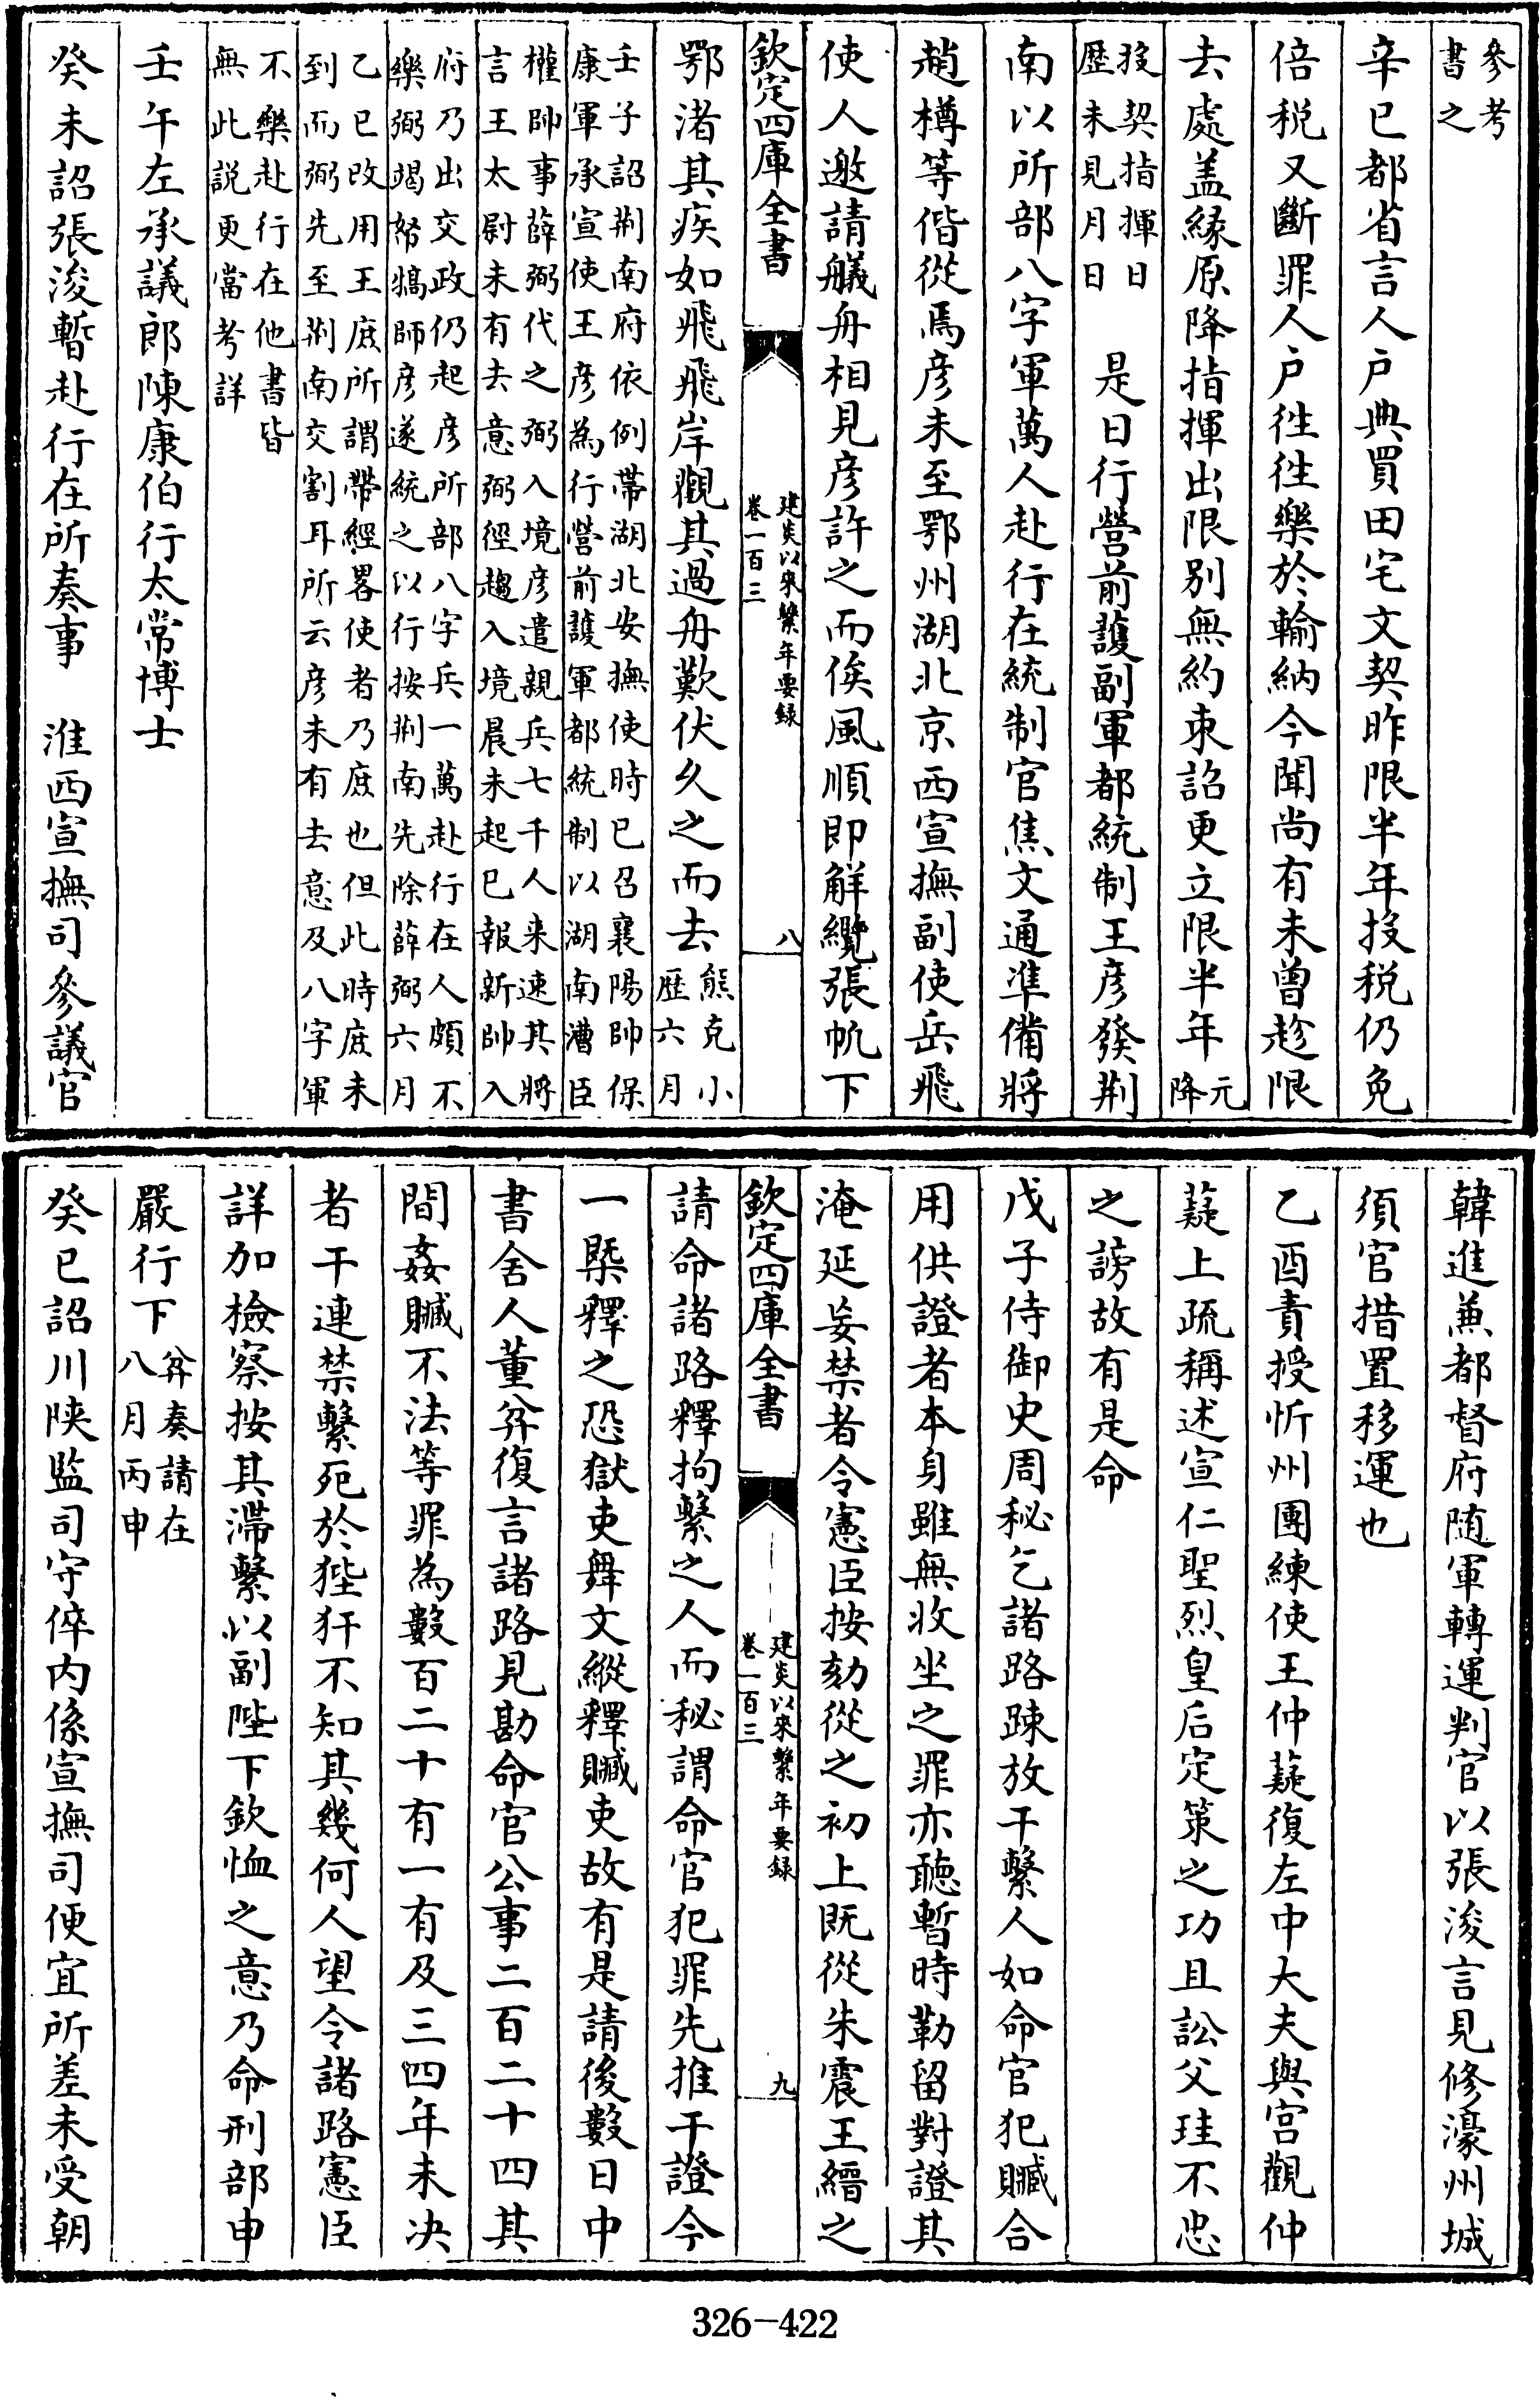 參考
書之
辛巳都省言人户典買田宅文契昨限半年投税仍免
倍税又斷罪人户徃徃樂於輸納今聞尚有未曾趁限
去處盖緣原降指揮出限别無約束詔更立限半年元降
投契指揮日
歴未見月日　是日行營前護副軍都統制王彦發荆
南以所部八字軍萬人赴行在統制官焦文通凖備將
趙樽等偕從焉彦未至鄂州湖北京西宣撫副使岳飛
使人邀請艤舟相見彦許之而俟風順即觧纜張帆下
欽定四庫全書
建炎以來繫年要録
卷一百三
八
鄂渚其疾如飛飛岸觀其過舟歎伏久之而去熊克小
歴六月
壬子詔荆南府依例帶湖北安撫使時已召襄陽帥保
康軍承宣使王彦為行營前護軍都統制以湖南漕臣
權帥事薛弼代之弼入境彦遣親兵七千人来速其將
言王太尉未有去意弼徑趨入境晨未起已報新帥入
府乃出交政仍起彦所部八字兵一萬赴行在人頗不
樂弼竭帑犒師彦遂統之以行按荆南先除薛弼六月
乙巳改用王庶所謂帶經畧使者乃庶也但此時庶未
到而弼先至荆南交割耳所云彦未有去意及八字軍
不樂赴行在他書皆
無此説更當考詳
壬午左承議郎陳康伯行太常博士
癸未詔張浚暫赴行在所奏事　淮西宣撫司參議官
韓進兼都督府随軍轉運判官以張浚言見修濠州城
須官措置移運也
乙酉責授忻州團練使王仲薿復左中大夫與宫觀仲
薿上疏稱述宣仁聖烈皇后定策之功且訟父珪不忠
之謗故有是命
戊子侍御史周秘乞諸路踈放干繫人如命官犯贓合
用供證者本身雖無收坐之罪亦聽暫時勒留對證其
淹延妄禁者令憲臣按劾從之初上既從朱震王縉之
欽定四庫全書
建炎以來繫年要録
卷一百三
九
請命諸路釋拘繫之人而秘謂命官犯罪先推干證今
一槩釋之恐獄吏舞文縱釋贓吏故有是請後數日中
書舍人董弅復言諸路見勘命官公事二百二十四其
間姦贓不法等罪為數百二十有一有及三四年未决
者干連禁繫死於狴犴不知其幾何人望令諸路憲臣
詳加檢察按其滯繫以副陛下欽恤之意乃命刑部申
嚴行下弅奏請在
八月丙申
癸巳詔川陜監司守倅内係宣撫司便宜所差未受朝
326-422